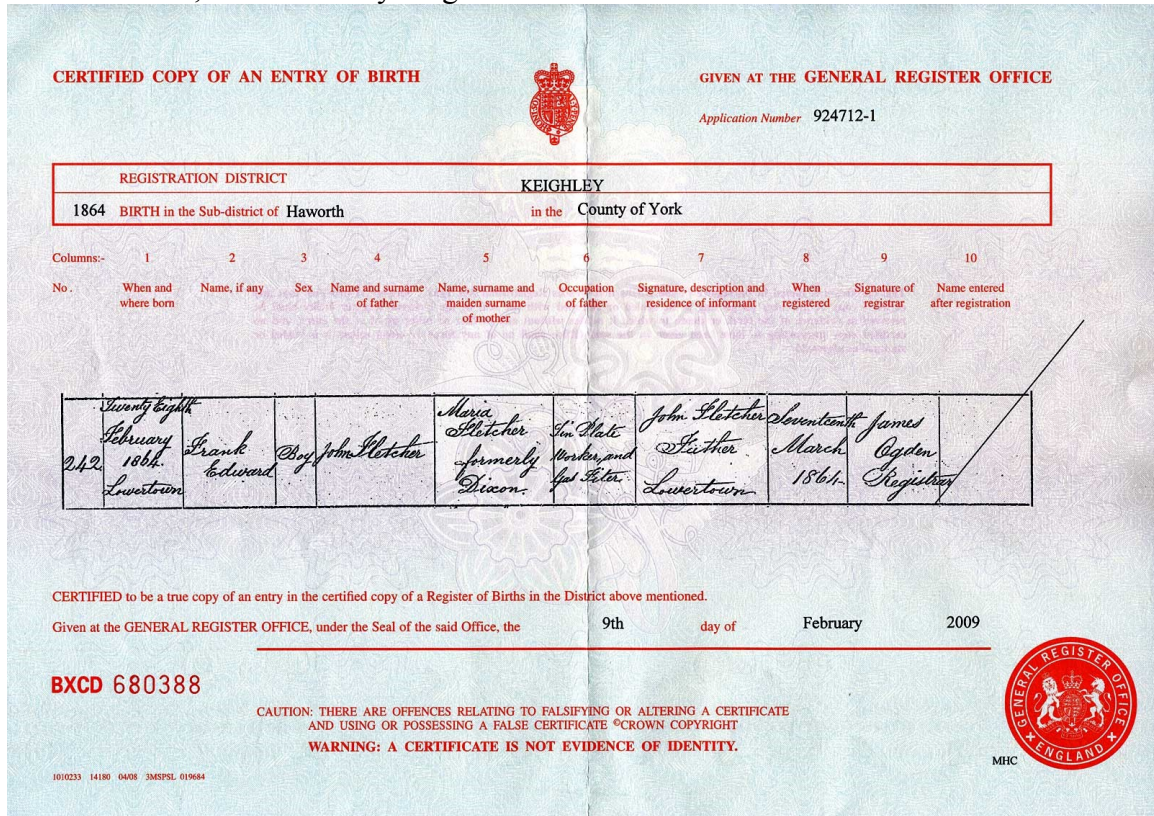 CERTIFIED COPY OF AN ENTRY OF BIRTH
GIVEN AT THE GENERAL REGISTER OFFICE
Application Number 924712-1
REGISTRATION DISTRICT KEIGHLEY
1864 BIRTH in the Sub-district of Haworth in the County of York
Columns:- 1 2 3 4 5 6 7 8 9 10
No. When and where born Name, if any Sex Name and surname of father Name, surname and maiden surname of mother Occupation of father Signature, description and residence of informant When registered Signature of registrar Name entered after registration
242 Twenty Eighth February 1864 Lowertown Frank Edward Boy John Fletcher Maria Fletcher formerly Dixon. Tin Plate Worker, and Gas Fiter John Fletcher Father Lowertown Seventeenth March 1864 James Ogden Registrar
CERTIFIED to be a true copy of an entry in the certified copy of a Register of Births in the District above mentioned.
Given at the GENERAL REGISTER OFFICE, under the Seal of the said Office, the 9th day of February 2009
BXCD 680388
CAUTION: THERE ARE OFFENCES RELATING TO FALSIFYING OR ALTERING A CERTIFICATE
AND USING OR POSSESSING A FALSE CERTIFICATE ©CROWN COPYRIGHT
WARNING: A CERTIFICATE IS NOT EVIDENCE OF IDENTITY.
GENERAL REGISTER OFFICE
ENGLAND
MHC
1010233 14180 04/08 3MSPSL 019684